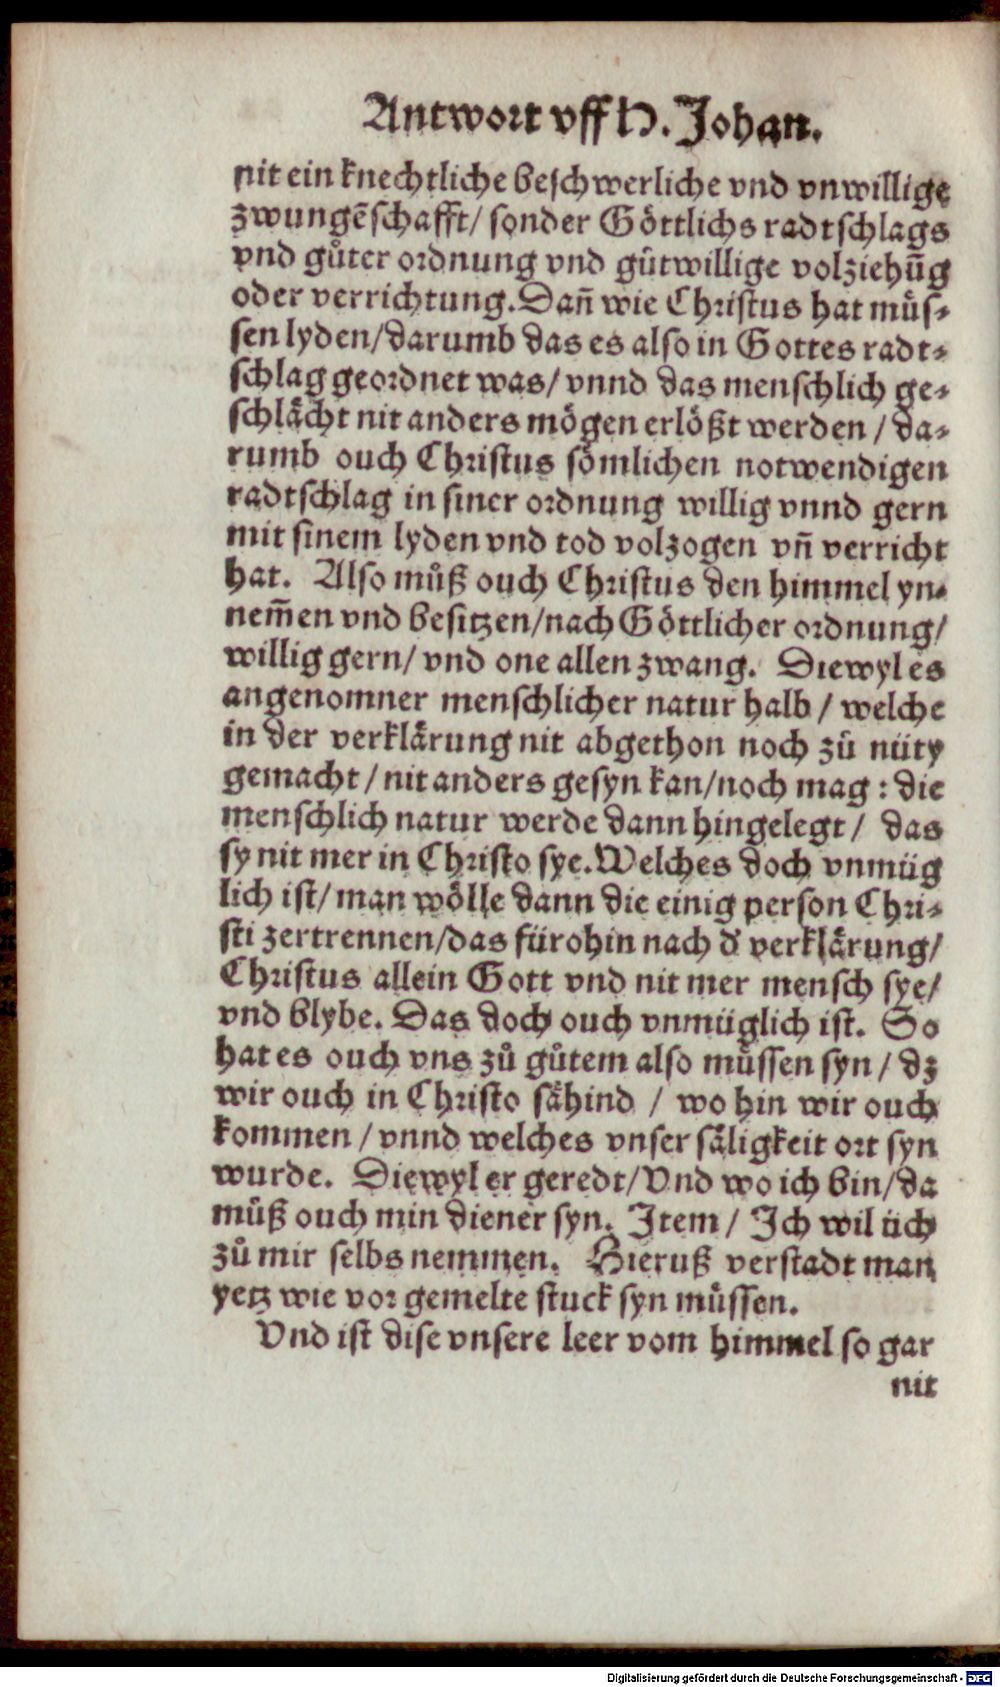 Antwort vff H. Johan.
nit ein knechtliche beschwerliche vnd vnwillige
zwungēschafft/ sonder Göttlichs radtschlags
vnd gůter ordnung vnd gůtwillige volziehūg
oder verrichtung. Dañ wie Christus hat můs-
sen lyden/darumb das es also in Gottes radt-
schlag geordnet was/ vnnd das menschlich ge-
schlächt nit anders mögen erlößt werden / da-
rumb ouch Christus sömlichen notwendigen
radtschlag in siner ordnung willig vnnd gern
mit sinem lyden vnd tod volzogen vñ verricht
hat. Also můß ouch Christus den himmel yn-
nem̃en vnd besitzen/nach Göttlicher ordnung/
willig gern/ vnd one allen zwang. Diewyl es
angenomner menschlicher natur halb / welche
in der verklärung nit abgethon noch zů nüty
gemacht / nit anders gesyn kan/noch mag : die
menschlich natur werde dann hingelegt / das
sy nit mer in Christo sye. Welches doch vnmüg
lich ist/ man wölle dann die einig person Chri-
sti zertrennen/das fürohin nach d' verklärung/
Christus allein Gott vnd nit mer mensch sye/
vnd blybe. Das doch ouch vnmüglich ist. So
hat es ouch vns zů gůtem also můssen syn / dz
wir ouch in Christo sähind / wo hin wir ouch
kommen / vnnd welches vnser säligkeit ort syn
wurde. Diewyl er geredt/ Vnd wo ich bin/da
můß ouch min diener syn. Item / Ich wil üch
zů mir selbs nemmen. Hieruß verstadt man
yetz wie vor gemelte stuck syn můssen.
Vnd ist dise vnsere leer vom himmel so gar
nit
Digitalisierung gefördert durch die Deutsche Forschungsgemeinschaft - DFG